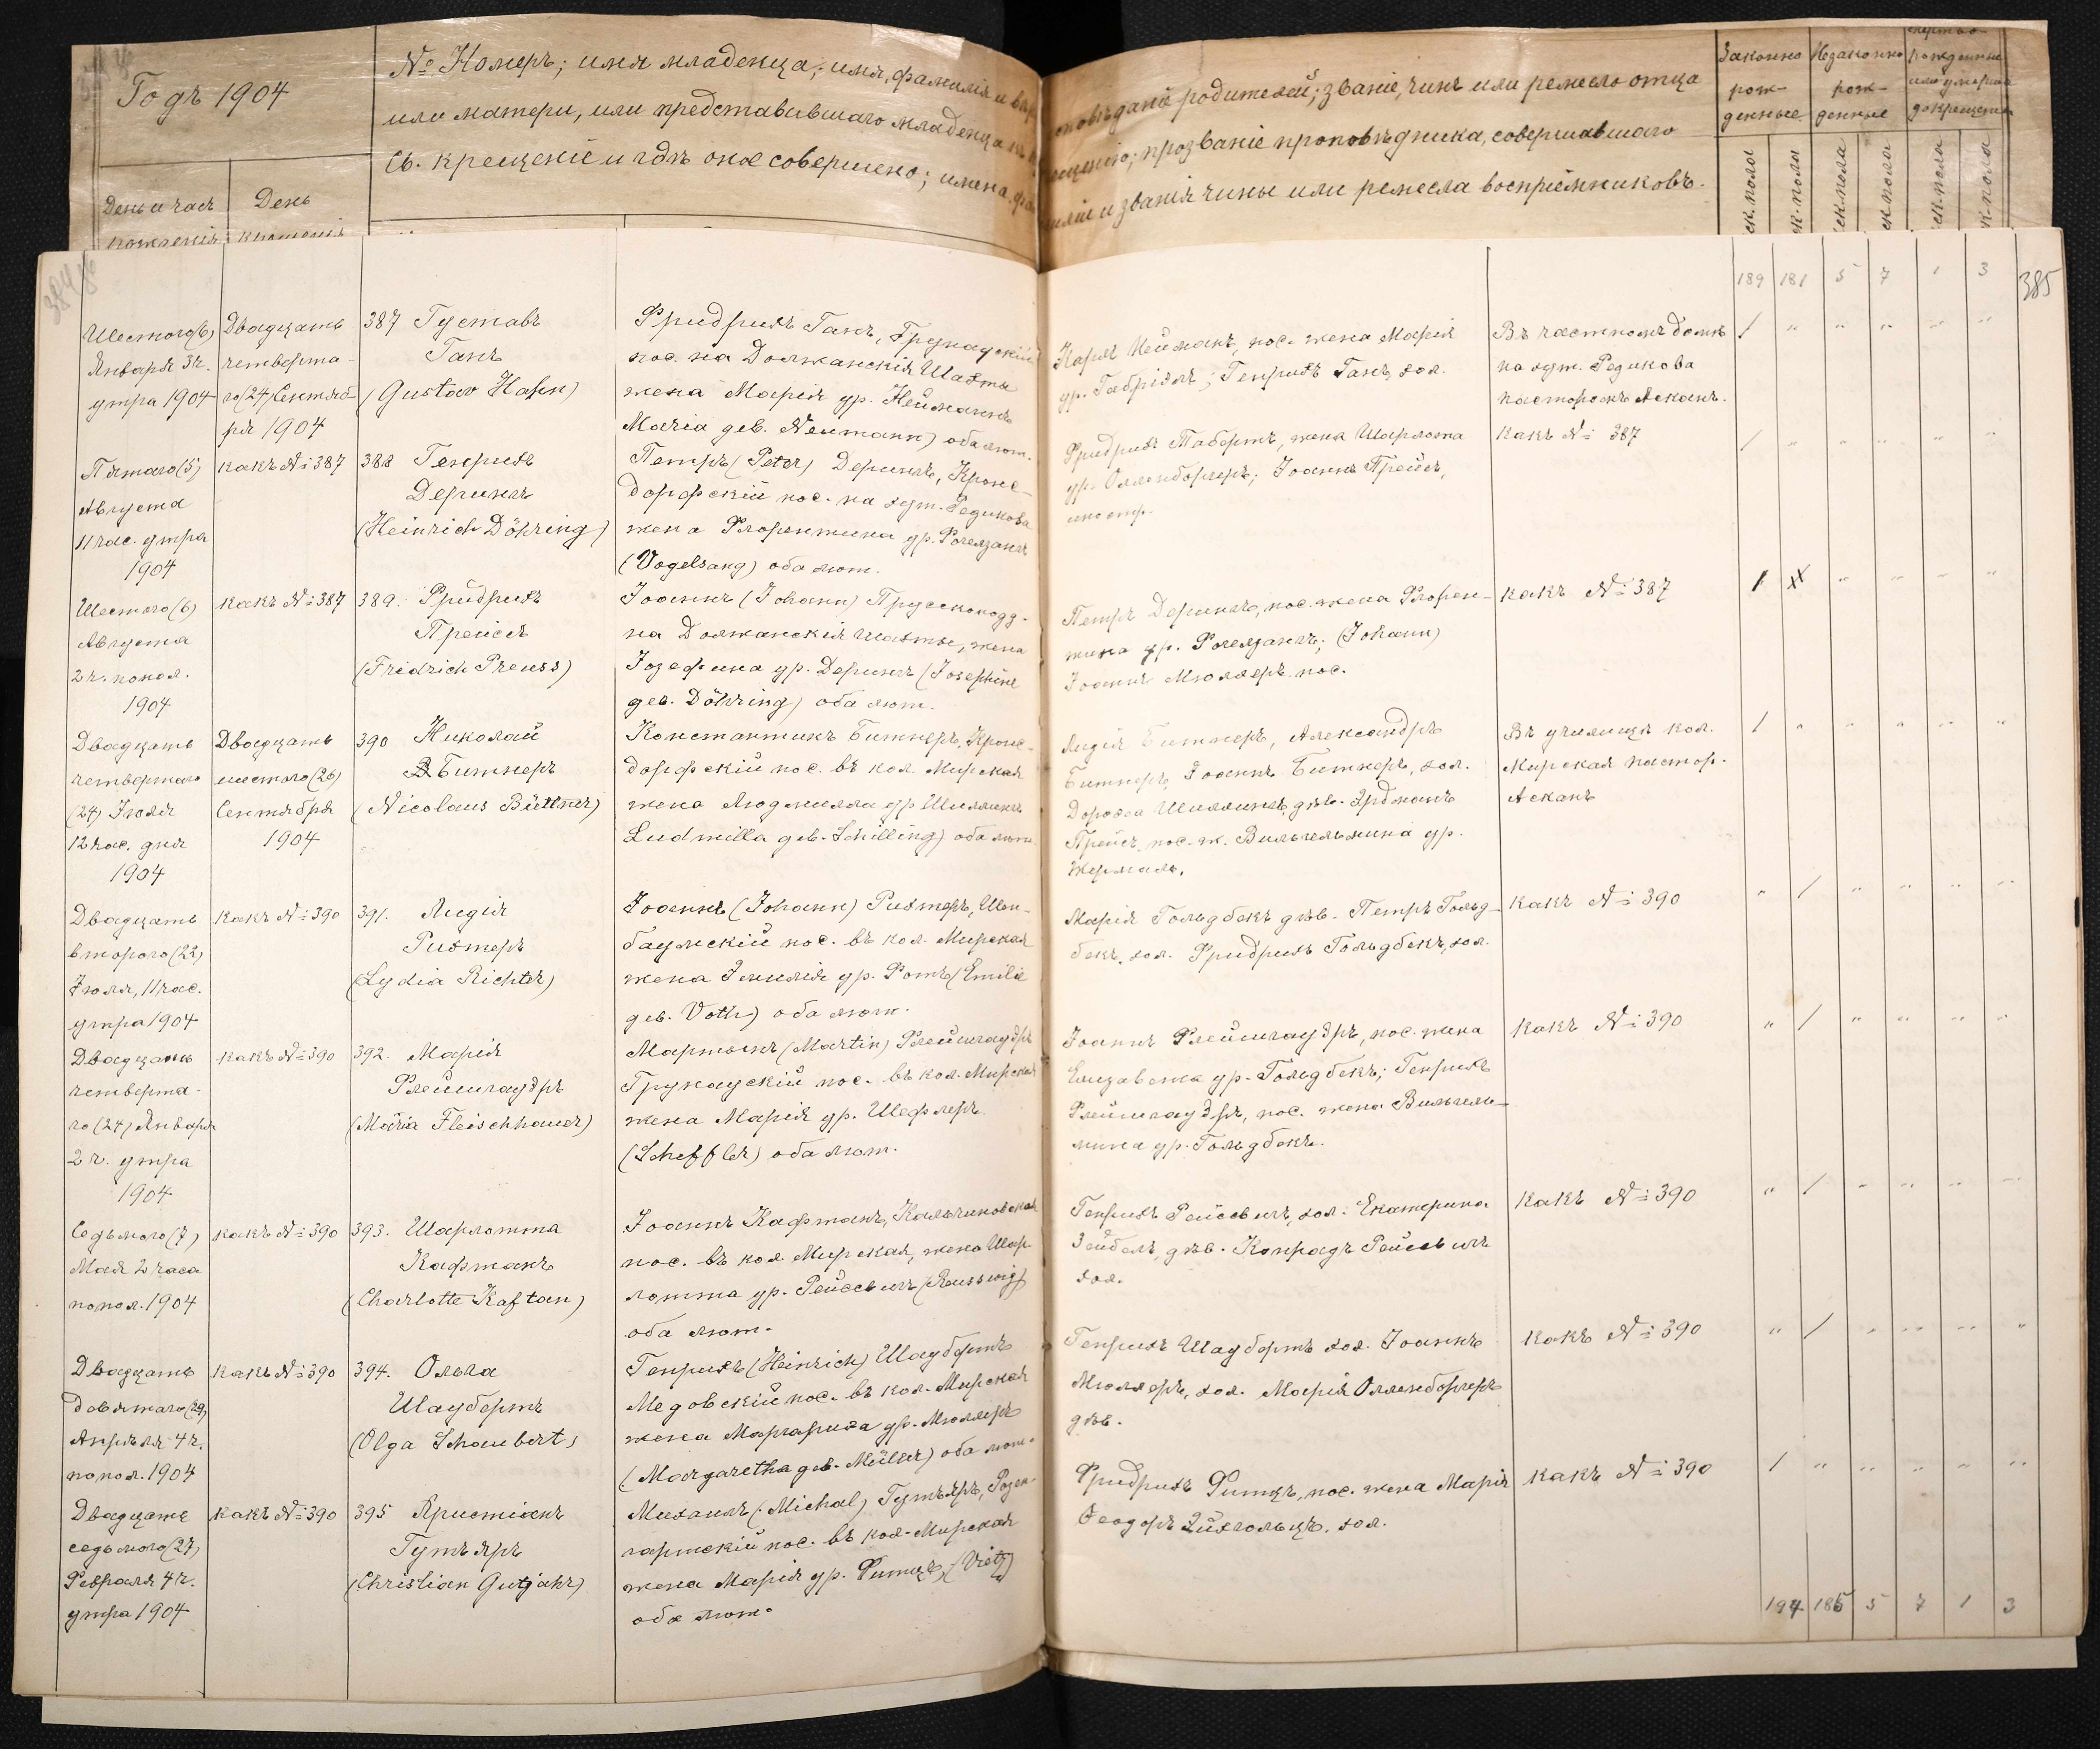 Годъ 1904
№ Номеръ; имя младенца; имя, фамилія и
или матери, или представившаго младенца
Св. крещеніе и гдѣ оное совершено; имена
День и часъ
рожденія
День
крещенія
исповѣданіе родителей; званіе, чинъ или ремесло отца
прозваніе проповѣдника, совершившаго
и званія чины или ремесла воспріемниковъ.
Законно
рож-
денные
Незаконно
рож-
денные
рожденные
или умершіе
до крещенія
384
189 181 5 7 1 3
385
Шестого (6)
Января 3 ч.
утра 1904
Двадцать
четверта-
го (24) Сентяб-
ря 1904
387 Густавъ
Ганъ
(Gustav Hahn)
Фридрихъ Ганъ, Грунауский
пос. на Должанскія Шахты
жена Марія ур. Нейманнъ
Maria geb. Neumann) оба лют.
Карлъ Нейманъ, пос. жена Марія
ур. Габріэль; Генрихъ Ганъ, хол.
Въ частномъ домѣ
на хут. Редикова
пасторомъ Асканъ.
1 " " " " "
Пятаго (5)
Августа
11 час. утра
1904
какъ № 387
388 Генрихъ
Дерингъ
(Heinrich Döhring)
Петръ (Peter) Дерингъ, Кронс-
дорфскій пос. на хут. Редикова
жена Флорентина ур. Фогелзангъ
(Vogelsang) оба лют.
Фридрихъ Табертъ, жена Шарлота
ур. Олленбергеръ; Іоаннъ Прейсъ,
иностр.
какъ № 387
1 " " " " "
Шестого (6)
Августа
2 ч. попол.
1904
какъ № 387
389. Фридрихъ
Прейссъ
(Fridrich Preuss)
Іоаннъ (Johann) Прусскоподд.
на Должанскія шахты, жена
Іозефина ур. Дерингъ (Josephine
geb. Döhring) оба лют.
Петръ Дерингъ, пос. жена Флорен-
тина ур. Фогелзангъ; (Johann)
Іоаннъ Мюллеръ пос.
какъ № 387
1 " " " "
Двадцать
четвертаго
(24) Іюля
12 час. дня
1904
Двадцать
шестого (26)
Сентября
1904
390 Николай
Битнеръ
(Nicolaus Büttner)
Константинъ Битнеръ, Кронс-
дорфскій пос. въ кол. Мирская
жена Людмилла ур. Шиллингъ
Ludmilla geb. Schilling) оба лют.
Лидія Битнеръ, Александръ
Битнеръ, Іоаннъ Битнеръ, хол.
Дорофеа Шиллингъ, дѣв. Эрдманъ
Прейсъ, пос. ж. Вильгельмина ур.
Жермаль.
Въ училищѣ кол.
Мирская пастор.
Асканъ
1 " " " " "
Двадцать
второго (22)
Іюля, 11 час.
утра 1904
какъ № 390
391. Лидія
Рихтеръ
(Lydia Richter)
Іоаннъ (Johann) Рихтеръ, Шен-
баумскій пос. въ кол. Мирская
жена Эмилія ур. Фотъ (Emilie
geb. Voth) оба лют.
Марія Гольдбекъ дѣв. Петръ Гольд-
бекъ, хол. Фридрихъ Гольдбекъ, хол.
какъ № 390
" 1 " " " "
Двадцать
четверта-
го (24) Января
2 ч. утра
1904
какъ № 390
392. Марія
Флейшгауэръ
(Maria Fleischhauer)
Мартынъ (Martin) Флейшгауэръ
Грунаускій пос. въ кол. Мирская
жена Марія ур. Шефлеръ
(Scheffler) оба лют.
Іоаннъ Флейшгауэръ, пос. жена
Елизавета ур. Гольдбекъ; Генрихъ
Флейшгауэръ, пос. жена Вильгель-
мина ур. Гольдбекъ.
какъ № 390
" 1 " " " "
Седьмого (7)
Мая 2 часа
попол. 1904
какъ № 390
393. Шарлотта
Кафтанъ
(Charlotte Kaftan)
Іоаннъ Кафтанъ, Кальчиновскій
пос. въ кол. Мирская, жена Шар-
лотта ур. Рейссвигъ (Reusswig)
оба лют.
Генрихъ Рейссвигъ, хол. Екатерина
Зейдель, дѣв. Конрадъ Рейссвигъ
хол.
какъ № 390
" 1 " " " "
Двадцать
девятаго (29)
Апрѣля 4 ч.
попол. 1904
какъ № 390
394. Ольга
Шаубертъ
(Olga Schaubert)
Генрихъ (Heinrich) Шаубертъ
Медовскій пос. въ кол. Мирская
жена Маргарита ур. Мюллеръ
(Margaretha geb. Müller) оба лют.
Генрихъ Шаубертъ хол. Іоаннъ
Мюллеръ, хол. Марія Олленбергеръ
дѣв.
какъ № 390
" 1 " " " "
Двадцать
седьмого (27)
Февраля 4 ч.
утра 1904
какъ № 390
395 Христіанъ
Гутъяръ
(Christian Gutjahr)
Михаилъ (Michal) Гутъяръ, Розен-
гартскій пос. въ кол. Мирская
жена Марія ур. Фитцъ (Vietz)
оба лют.
Фридрихъ Фитцъ, пос. жена Марія
Феодоръ Эйхгольцъ, хол.
какъ № 390
1 " " " " "
194 185 5 7 1 3